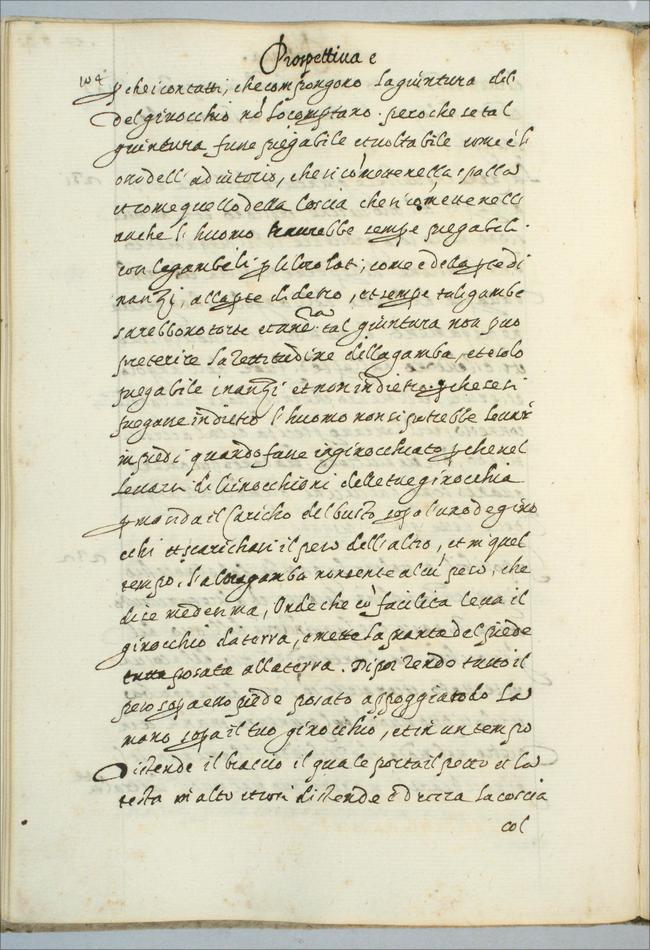 Prospettiua e
104
p che i contatti, che compongono la giuntura del
del ginochio nō lo comportano. pero che se tal
giuntura fune piegabile et uoltabile come è l
oso dell adiutorio, che si cōmette nella spalla
et come quello della Coscia che si cōmette nell
anche l huomo haurebbe sempe piegabili
con le gambe li p li loro lati, come è della pte di
nanzi, alla pte di dietro, et sempe tali gambe
sarebbono torte et anc.ra tal giuntura non puo
preterire la rettitudine della gamba, et e solo
piegabile inanzi et non indietro. p che se si
piegane indietro l huomo non si potrebbe leuar
in piedi quando fune inginocchiato p che nel
leuarsi di ginocchioni delle due ginocchia
p manda il Caricho del busto sopa l uno de gino
cchi et scarichasi il peso dell altro, et in quel
tempo l altra gamba non sente alcū peso, che
di se medesima, Onde che cō facilita leua il
ginocchio da terra, e mette la pianta del piede
tutta posata alla terra. Dipoi rendo tutto il
peso sopa esso piede posato appoggiando la
mano sopa il suo ginochio, et in un tempo
Distende il braccio il quale porta il petto et la
testa in alto et cosi distende e drizza la coscia
col